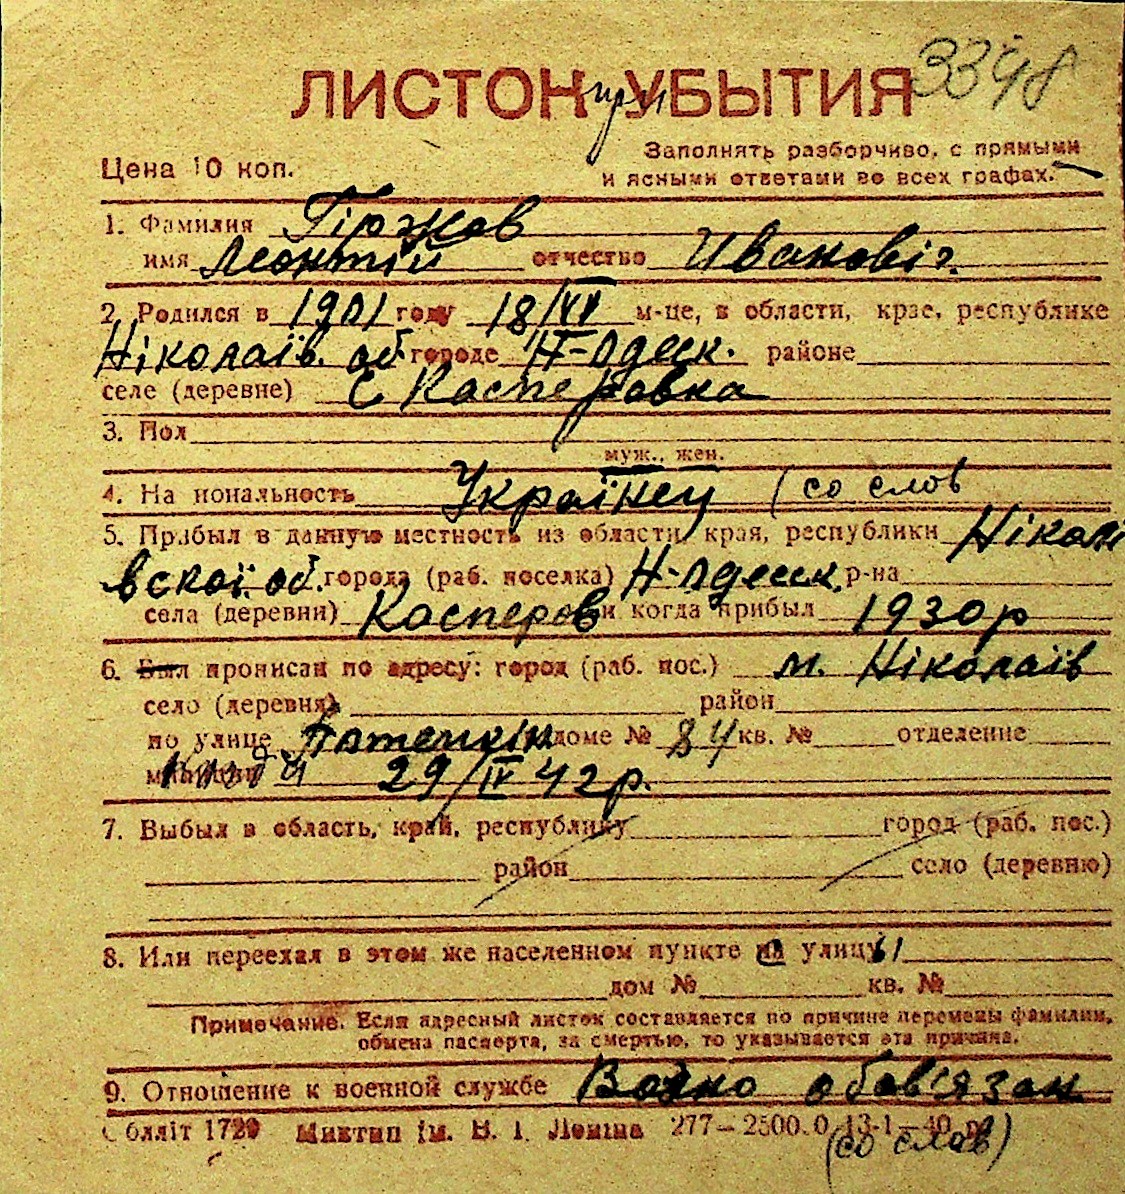 3348
ЛИСТОК при УБЫТИЯ
Цена 10 коп.
Заполнять разборчиво, с прямыми
и ясными ответами во всех графах.
1. Фамилия Гіржов
имя Леонтій отчество Ивановіч.
2. Родился в 1901 году 18/VI м-це, в области, крае, республике
Ніколаїв. об. городе Н-Одеск. районе
селе (деревне) С Касперовка
3. Пол
муж., жен.
4. Национальность Українец (со слов
5. Прибыл в данную местность из области, края, республики Нікола
вскої об. города (раб. поселка) Н-Одесск. р-на
села (деревни) Касперов и когда прибыл 1930 р
6. Был прописан по адресу: город (раб. пос.) м. Ніколаїв
село (деревня) район
по улице доме № 84 кв. № отделение
милиции 29/IV 42 р.
7. Выбыл в область, край, республику город (раб. пос.)
район село (деревню)
8. Или переехал в этом же населенном пункте на улицу
дом № кв. №
Примечание. Если адресный листок составляется по причине перемены фамилии,
обмена паспорта, за смертью, то указывается эта причина.
9. Отношение к военной службе обов'язан
Облліт 1720 Миктип ім. В. І. Леніна 277—2500.0 13-1—40 р.
(со слов)